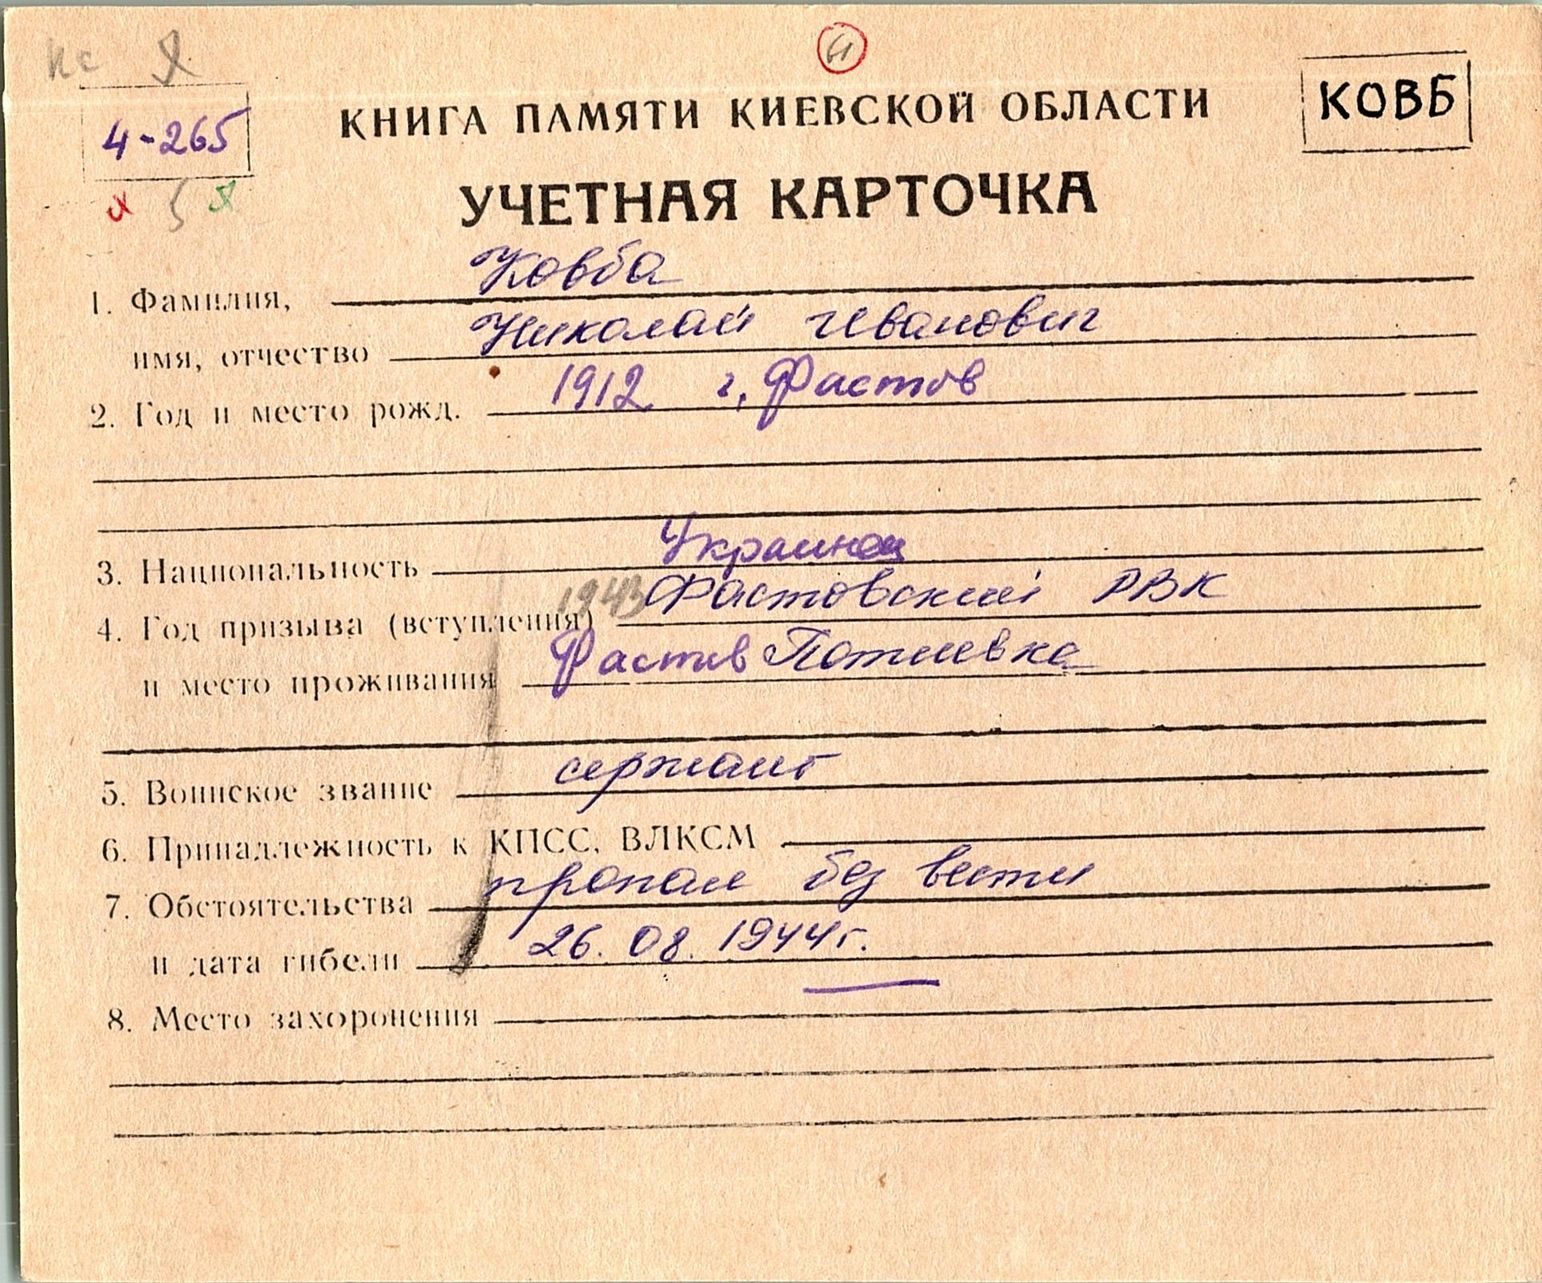 4-265
КНИГА ПАМЯТИ КИЕВСКОЙ ОБЛАСТИ
КОВБ
УЧЕТНАЯ КАРТОЧКА
1. Фамилия, Ковба
имя, отчество Николай Иванович
2. Год и место рожд. 1912 г, Фастов
3. Национальность Украинец
4. Год призыва (вступления) 1943 Фастовский РВК
и место проживания Фастив Потиевка
5. Воинское звание сержант
6. Принадлежность к КПСС, ВЛКСМ
7. Обстоятельства пропал без вести
и дата гибели 26.08.1944г.
8. Место захоронения